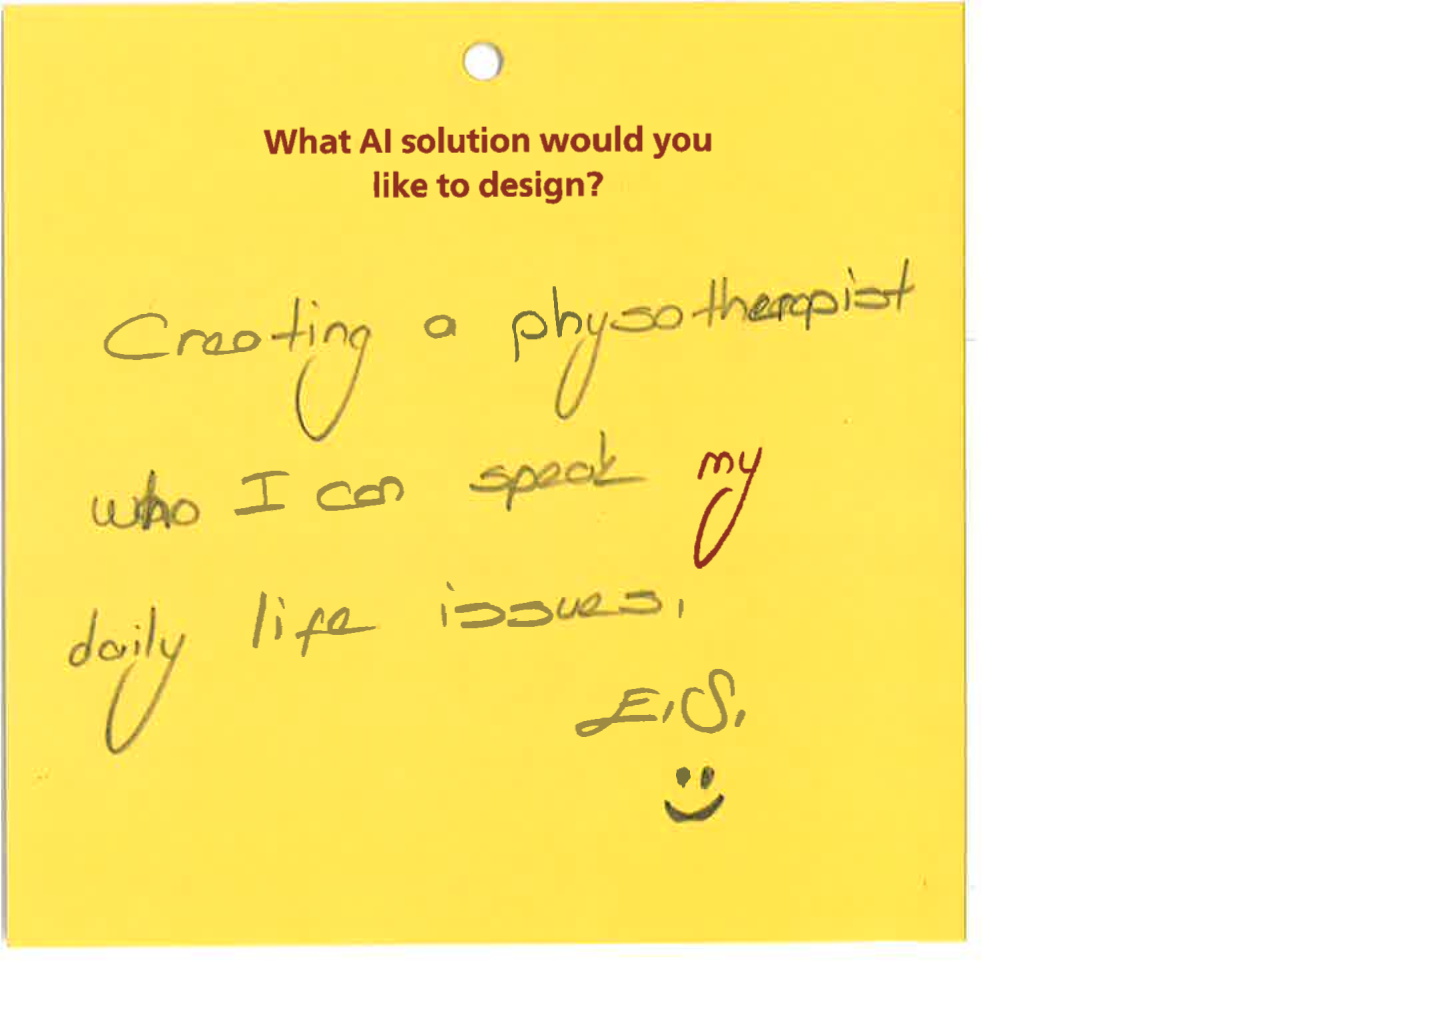 What AI solution would you
like to design?
Creating a physotherapist
who I can speak my
daily life issues.
E.S.